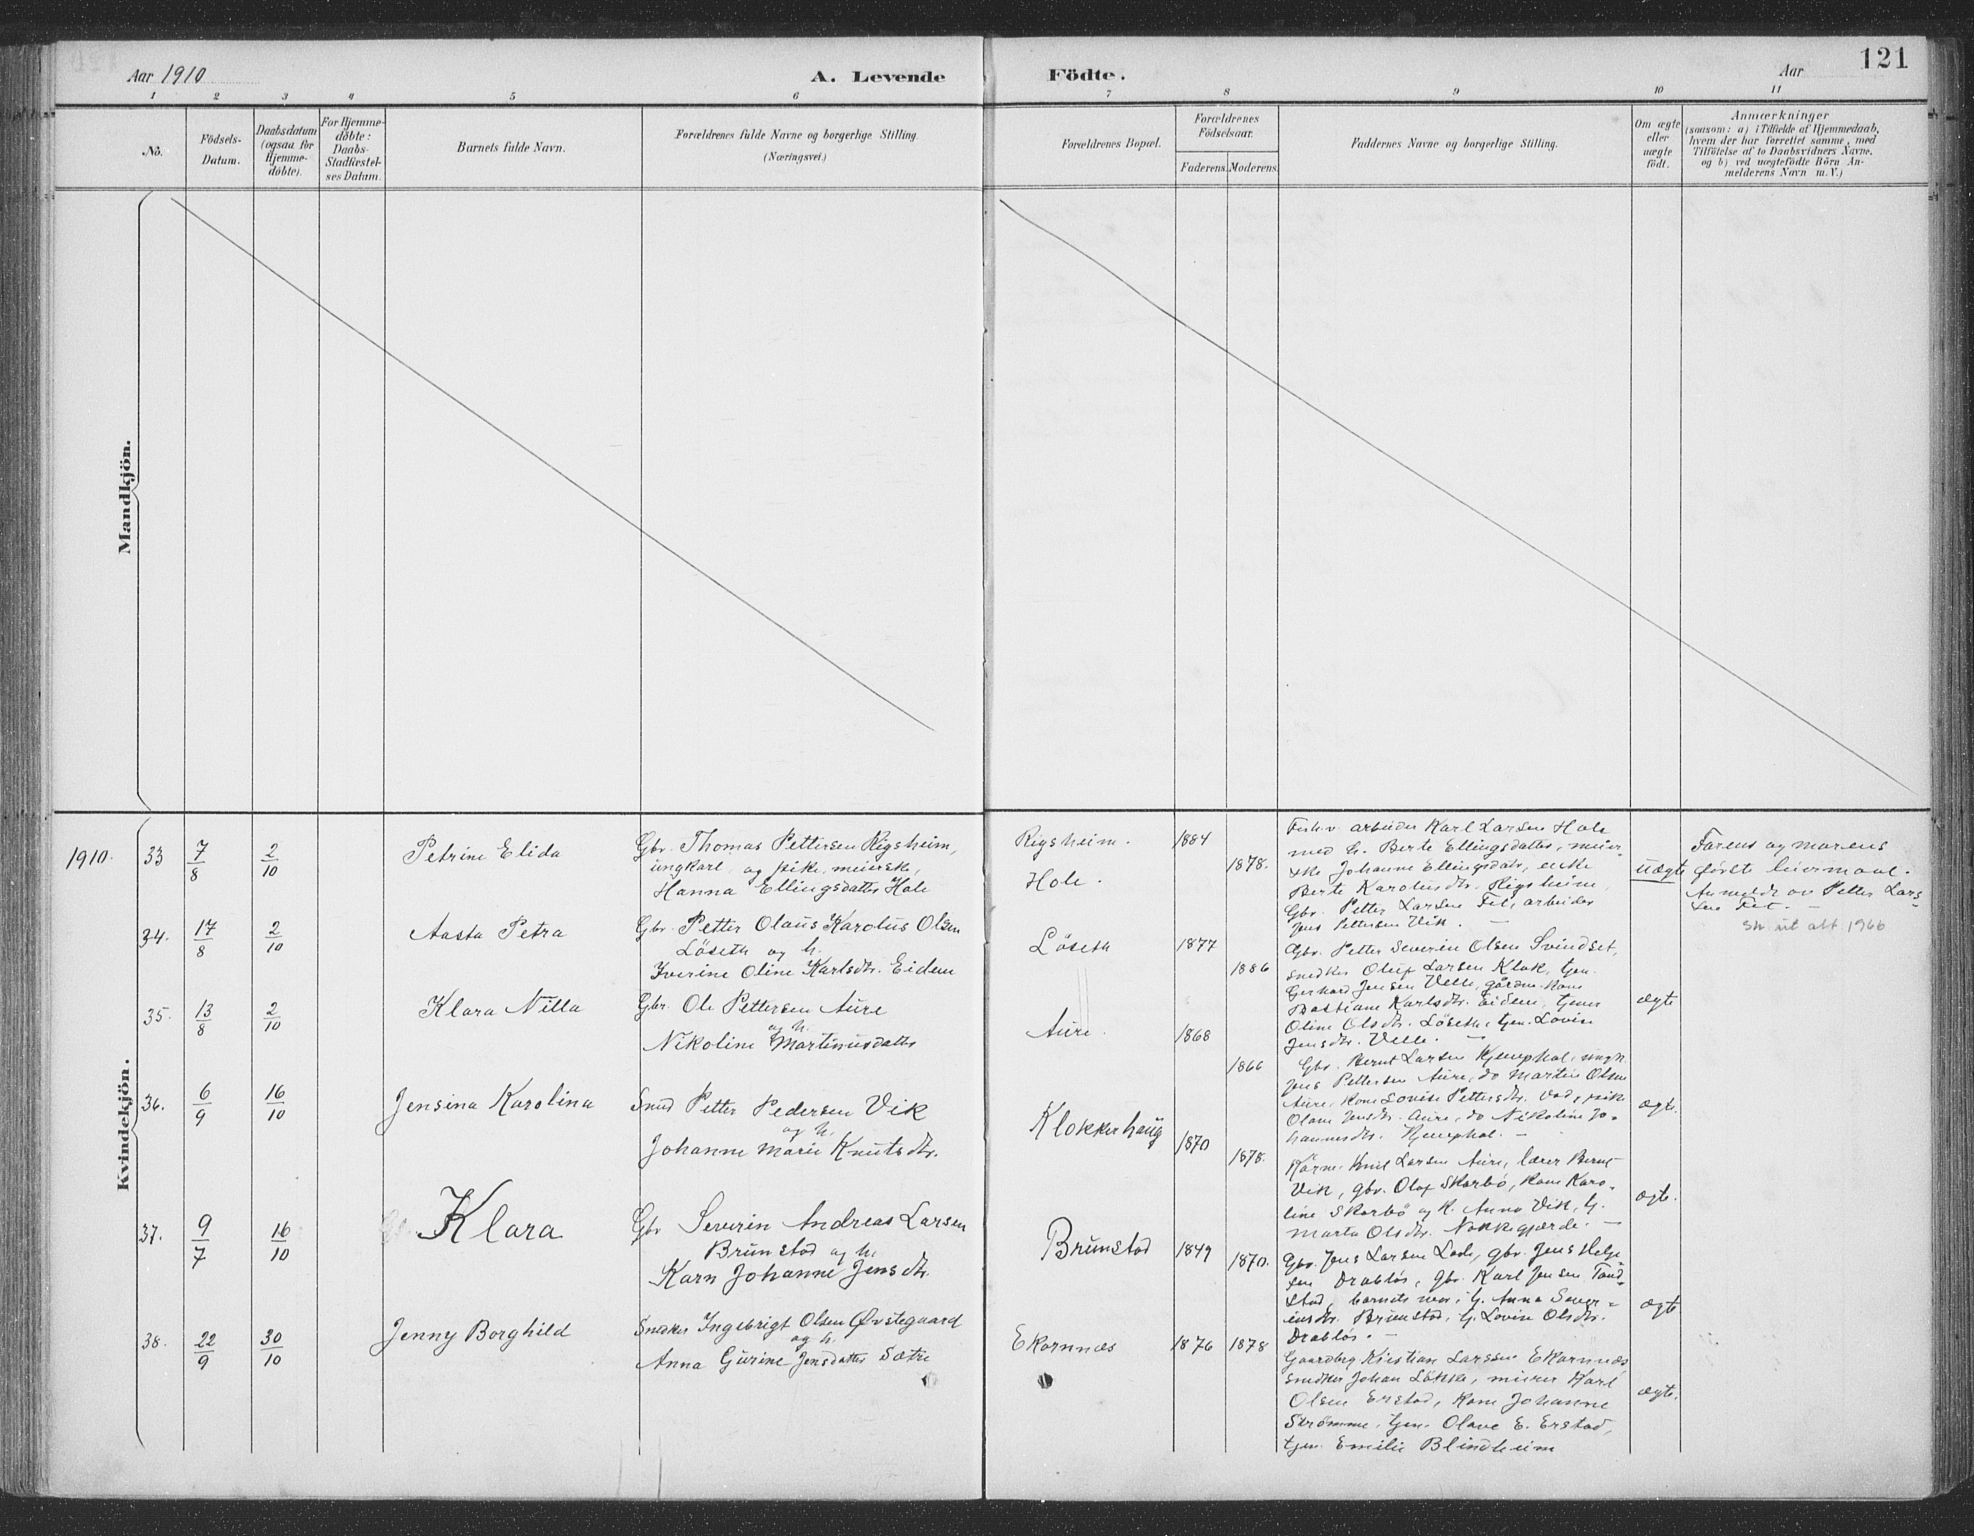 Aar 1910
A. Levende
Födte.
Aar
121
1 2 3 4 5 6 7 8 9 10 11
No.
Födsels-
Datum.
Daabsdatum
(ogsaa for
Hjemme-
döbte).
For Hjemme-
döbte:
Daabs-
Stadfæstel-
ses Datum.
Barnets fulde Navn.
Forældrenes fulde Navne og borgerlige Stilling.
(Næringsvei.)
Forældrenes Bopæl.
Forældrenes
Födselsaar.
Faderens. Moderens.
Faddernes Navne og borgerlige Stilling.
Om ægte
eller
uægte
födt.
Anmærkninger
(saasom: a) i Tilfælde af Hjemmedaab,
hvem der har forrettet samme, med
Tilföielse af to Daabsvidners Navne,
og b) ved uægtefödte Börn An-
melderens Navn m. V.)
Mandkjön.
Kvindekjön.
1910.
33 7/8 2/10 Petrine Elida
Gbr. Thomas Pettersen Rigsheim,
ungkarl, og pike, meierske,
Hanna Ellingsdatter Hole
Rigsheim.
Hole.
1884
1878.
Fabr. arbeider Karl Larsen Hole
med h. Berte Ellingsdatter, meier-
ske Johanne Ellingsdatr, enke
Berte Karolusdtr. Rigsheim,
Gbr. Petter Larsen Fet, arbeider
Jens Pettersen Vik.
uægte
Farens og morens
første leiermaal.
Anmeldt av Petter Lars-
sen Fet.
Sk. ut att. 1966
34. 17/8 2/10 Aasta Petra
Gbr. Petter Olaus Karolus Olsen
Löseth og h.
Iverine Oline Karlsdtr. Eidem
Löseth
1877
1886
Gbr. Petter Severin Olsen Svindset,
snedker Oluf Larsen Klok, tjen.
Gerhard Jensen Velle, gårdm. kone
Bastiane Karlsdtr. Eidem, tjener
Oline Olsdtr. Löseth, tjen. Lovise
Jensdtr. Velle.
ægte
35. 13/8 2/10 Klara Nilla
Gbr. Ole Pettersen Aure
og h.
Nikoline Martinusdatter
Aure.
1868
1866
Gbr. Bernt Larsen Kjemphol, ungk.
Jens Pettersen Aure, do Martin Olsen
Aure, kone Lovise Pettersdtr. pike
Olave Jensdtr. Aure, do Nikoline Jo-
hannesdtr. Kjemphol.
ægte.
36. 6/9 16/10 Jensina Karolina
Smed Petter Pedersen Vik
og h.
Johanne Marie Knutsdtr.
Klokkerhaug
1870
1878.
Knut Larsen Aure, lærer Bernt
Vik, gbr. Olaf Skorbö, kone Karo-
line Skorbö og k. Anna Vik, G.
Marta Olsdtr. Nakkgjærde.
ægte.
37. 9/7 16/10 Klara
Gbr Severin Andreas Larsen
Brunstad og h.
Karn Johanne Jensdtr.
Brunstad
1849
1870.
Gbr. Jens Larsen Lade, gbr. Jens Helge-
sen Drabløs, gbr. Karl Jensen Tand-
stad, barnets mor, G. Anna Sever-
insdtr. Brunstad, G. Lovise Olsdtr.
Drabløs.
ægte.
38. 22/9 30/10 Jenny Borghild
Snedker Ingebrigt Olsen Øvstegaard
og h.
Anna Gurine Jensdatter Sætre
Ekornnæs
1876 1878
Gaardbrg Kristian Larssen Ekornnæs
snedker Johan Løkke, murer Karl
Olsen Erstad, kone Johanne
Strømme, tjen. Olave E. Erstad,
tjen. Emilie Blindheim
ægte.